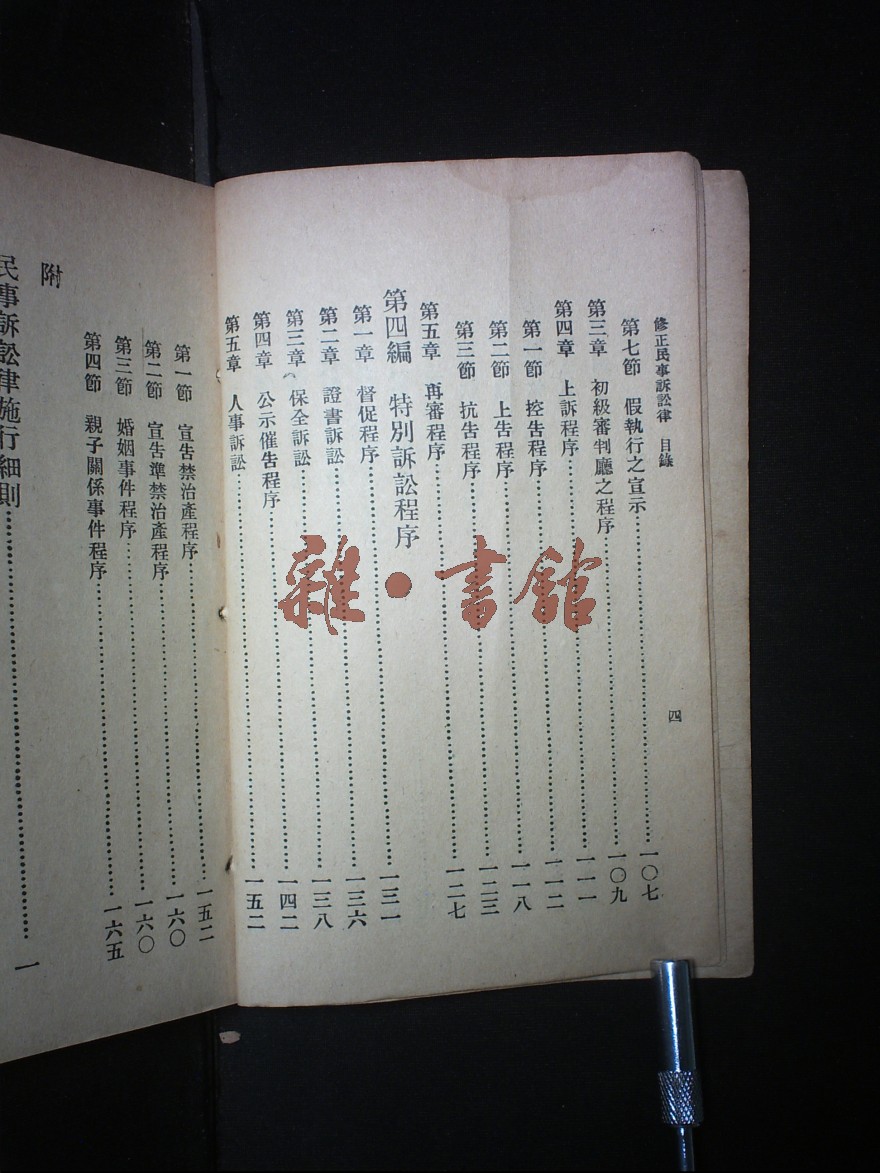 修正民事訴訟律 目錄 四
第七節 假執行之宣示……一〇七
第三章 初級審判廳之程序……一〇九
第四章 上訴程序……一一一
第一節 控告程序……一一二
第二節 上告程序……一一八
第三節 抗告程序……一二三
第五章 再審程序……一二七
第四編 特別訴訟程序
第一章 督促程序……一三一
第二章 證書訴訟……一三六
第三章 保全訴訟……一三八
第四章 公示催告程序……一四二
第五章 人事訴訟……一五二
第一節 宣告禁治產程序……一五二
第二節 宣告準禁治產程序……一六〇
第三節 婚姻事件程序……一六〇
第四節 親子關係事件程序……一六五
附
民事訴訟律施行細則……一
雜·書館